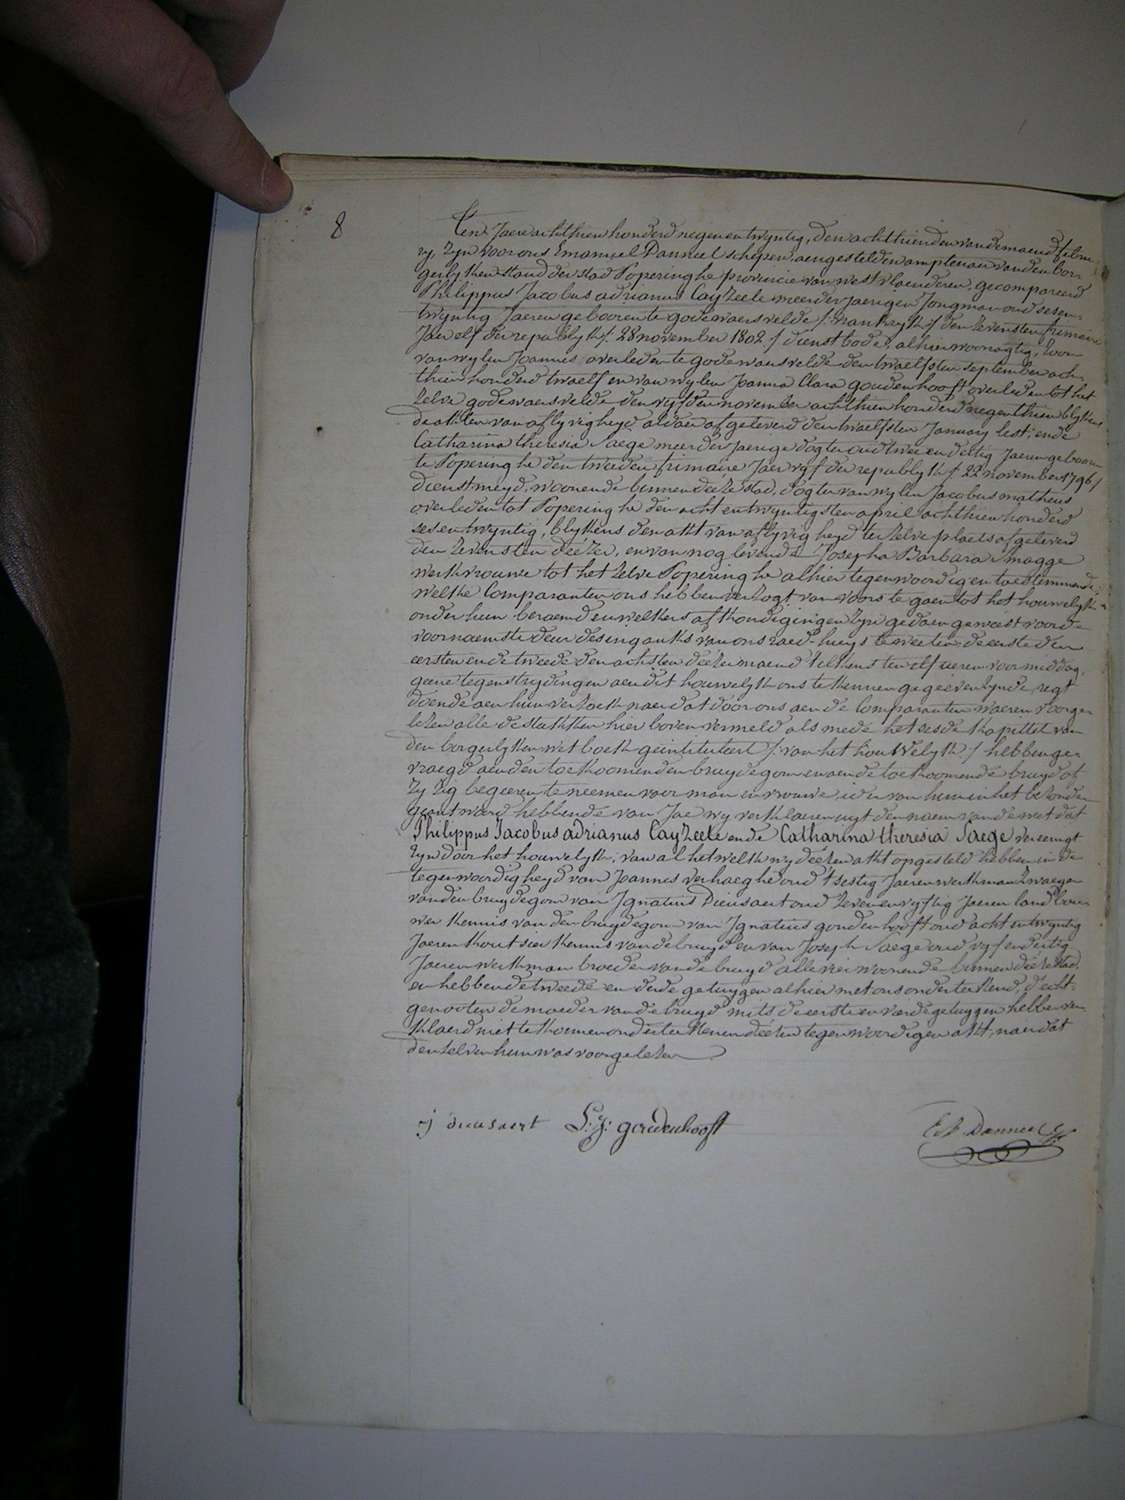 8
Ten Jaere achthien honderd negenentwyntig, den achthienden van de maend febru-
ry, zyn voor ons Emanuel Danneel schepen, aengestelden amptenaer van den bor-
gerlyken stand der stad Poperinghe provincie van westvlaenderen, gecompareerd
Philippus Jacobus adrianus Cayzeele meerderjaerigen Jongman oud sesen-
twyntig Jaeren gebooren te godewaersvelde /: vrankryk :/ den zevensten frimaire
Jaer elf der republyk /: 28 november 1802 :/ dienstbode, alhier woonagtig, zoon
van wylen Joannes overleden te godewaersvelde den twaelfsten september ach-
thien honderd twaelf en van wylen Joanna Clara goudenhooft overleden tot het
zelve godewaersvelde den vyfden november achthien honderd negenthien blykens
de akten van aflyvigheyd aldaer afgeleverd den twaelfsten January lest; ende
Catharina theresia Saege meerderjaerige dogter oud twee en dertig Jaeren gebooren
te Poperinghe den tweeden frimaire Jaer vyf der republyk /: 22 november 1796 :/
dienstmeyd, woonende binnen deeze stad, dogter van wylen Jacobus mattheus
overleden tot Poperinghe den acht en twyntigsten april achthien honderd
sesentwyntig, blykens den akt van aflyvigheyd ter zelve plaets afgeleverd
den zevensten deezer, en van nog levende Josepha Barbara Smagge
werkvrouwe tot het zelve Poperinghe alhier tegenwoordig en toestemmende;
welke Comparanten ons hebben verzogt van voors te gaen tot het houwelyk
onder hun beraemd en welkers afkondigingen zyn gedaen geweest voor de
voornaemste deur des ingank's van ons raed-huys te weeten de eerste den
eersten ende tweede den achsten deezer maend telkens ten elf ueren voormiddag,
geene tegenstrydingen aen dit houwelyk ons te kennen gegeeven zynde, regt
doende aen hun verzoek naer dat door ons aen de Comparanten waeren voorge-
lezen alle de stukken hier boven vermeld als mede het sesde kapittel van
den borgerlyken wetboek geintituleert /: van het houwelyk :/ hebben ge-
vraegd aen den toekoomenden bruydegom en aen de toekoomende bruyd of
zy zig begeeren te neemen voor man en vrouwe, ider van hun in het bezonder
geantword hebbende van Jae wy verklaeren uyt den naem van de wet dat
Philippus Jacobus adrianus Cayzeele ende Catharina theresia Saege vereenigt
zyn door het houwelyk; van al het welk wy deezen akt opgesteld hebben in de
tegenwoordigheyd van Joannes verhaeghe oud sestig Jaeren werkman zwaeger
van den bruydegom van Ignatius Dieusaert oud zeven en vyftig Jaeren landbou-
wer kennis van den bruydegom van Ignatius goudenhooft oud acht en twyntig
Jaeren kennis van de bruyd en van Joseph Saege oud vyf en dertig
Jaeren werkman broeder van de bruyd alle vier woonende binnen deeze stad,
en hebben de tweede en derde getuygen alhier met ons onderteekend, d'echt-
genooten de moeder van de bruyd mits de eerste en vierde getuygen hebben ver-
klaerd niet te kunnen onderteekenen deezen tegenwoordigen akt, naer dat
den zelven hun was voorgelezen
j dieusaert L: J: goudenhooft Em Danneel